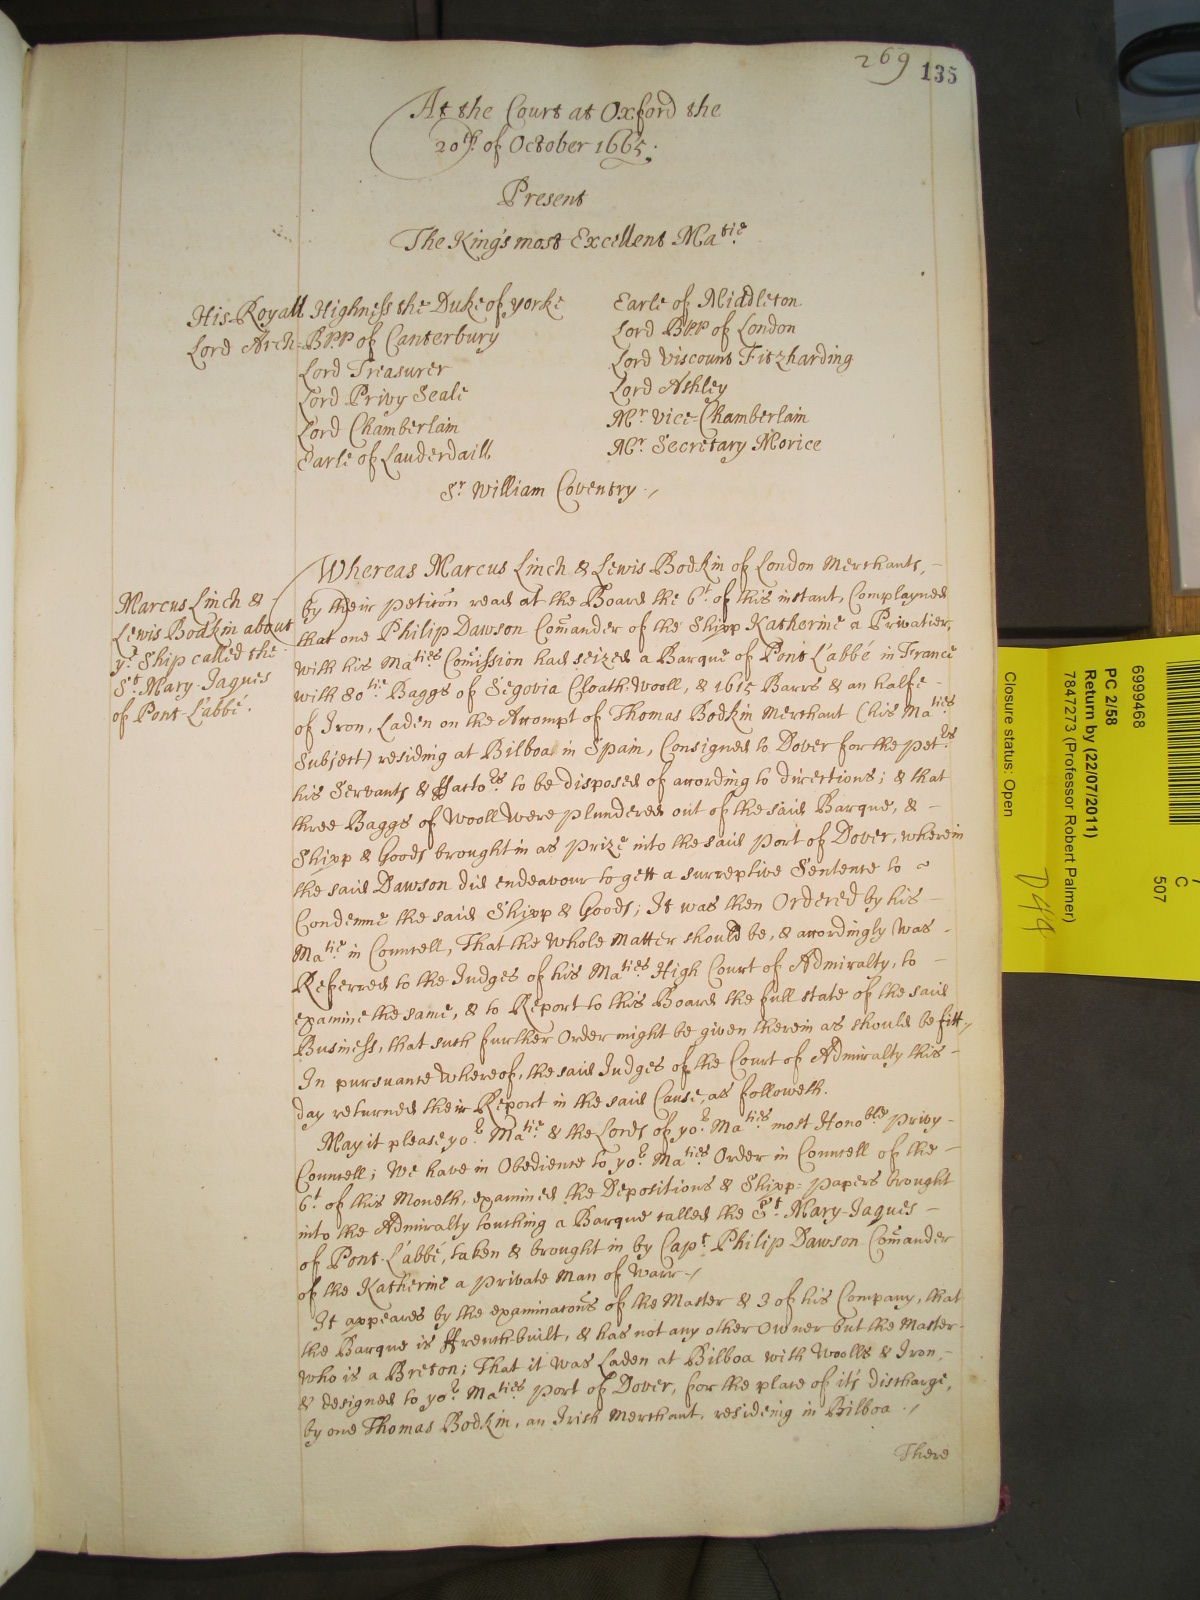 269 135
At the Court at Oxford the
20th. of October 1665.
Present
The Kings most Excellent Matie.
His Royall Highness the Duke of yorke
Lord Arch-BPP of Canterbury
Lord Treasurer
Lord Privy Seale
Lord Chamberlain
Earle of Lauderdaill
Earle of Middleton
Lord BPP of London
Lord Viscount Fitzharding
Lord Ashley
Mr. Vice-Chamberlain
Mr. Secretary Morice
Sr. William Coventry
Marcus Linch &
Lewis Bodkin about
ye. Ship called the
St. Mary-Jaques
of Pont L'abbé.
Whereas Marcus Linch & Lewis Bodkin of London Merchants,
by their peticon read at the Board the 6t. of this instant, Complayned
that one Philip Dawson Comander of the Shipp Katherine a Privatier,
with his Maties Comission had seized a Barque of Pont L'abbé in France
with 80tie Baggs of Segovia Cloath-Wooll, & 1615 Barrs & an halfe
of Iron, Laden on the Accompt of Thomas Bodkin Merchant (his Maties
Subject) residing at Bilboa in Spain, Consigned to Dover for the petrs.
his Servants & ffactors to be disposed of according to directions; & that
three Baggs of Wooll were plundered out of the said Barque, &
Shipp & Goods brought in as Prize into the said Port of Dover, wherein
the said Dawson did endeavour to gett a surreptive Sentence to
Condemne the said Shipp & Goods; It was then Ordered by his
Matie. in Councell, That the Whole Matter should be, & accordingly was
Referred to the Judges of his Maties High Court of Admiralty, to
examine the same, & to Report to this Board the full state of the said
Business, that such further Order might be given therein as should be fitt,
In pursuance whereof, the said Judges of the Court of Admiralty this
day returned their Report in the said Cause, as followeth.
May it please yor. Matie & the Lords of yor. Maties most Honoble Privy
Councell; We have in Obedience to yor. Maties Order in Councell of the
6t. of this Moneth, examined the Depositions & Shipp-papers brought
into the Admiralty touching a Barque called the St. Mary-Jaques
of Pont-L'abbé, taken & brought in by Capt. Philip Dawson Comander
of the Katherine a Private Man of Warr
It appeares by the examinacons of the Master & 3 of his Company, that
the Barque is ffrench built, & has not any other Owner but the Master
who is a Breton; That it was Laden at Bilboa with Woolls & Iron,
& designed to yor. Maties Port of Dover, for the place of its discharge,
by one Thomas Bodkin, an Irish Merchant, resideing in Bilboa
There
6999468
PC 2/58
Return by (22/07/2011)
7847273 (Professor Robert Palmer)
Closure status: Open
C
507